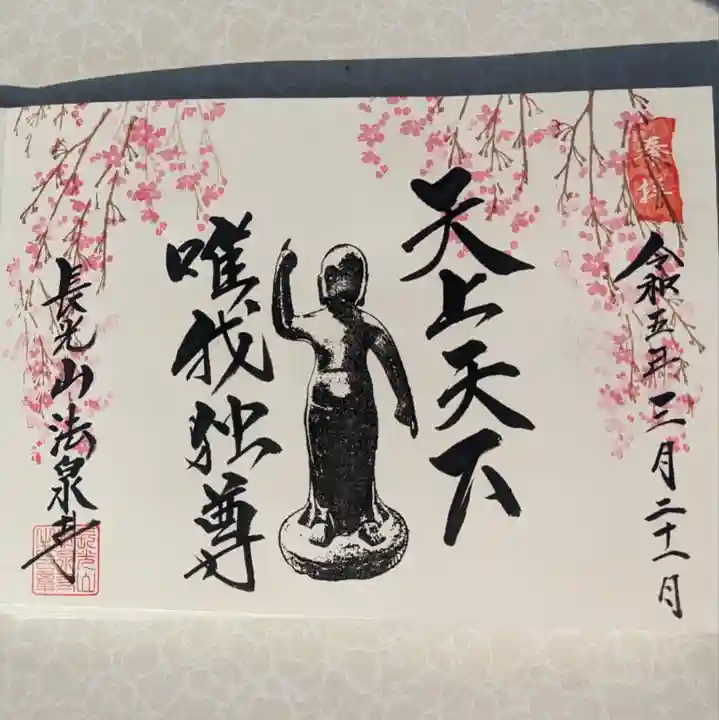 奉拝
令和五年三月二十一日
天上天下
唯我独尊
長光山法泉寺